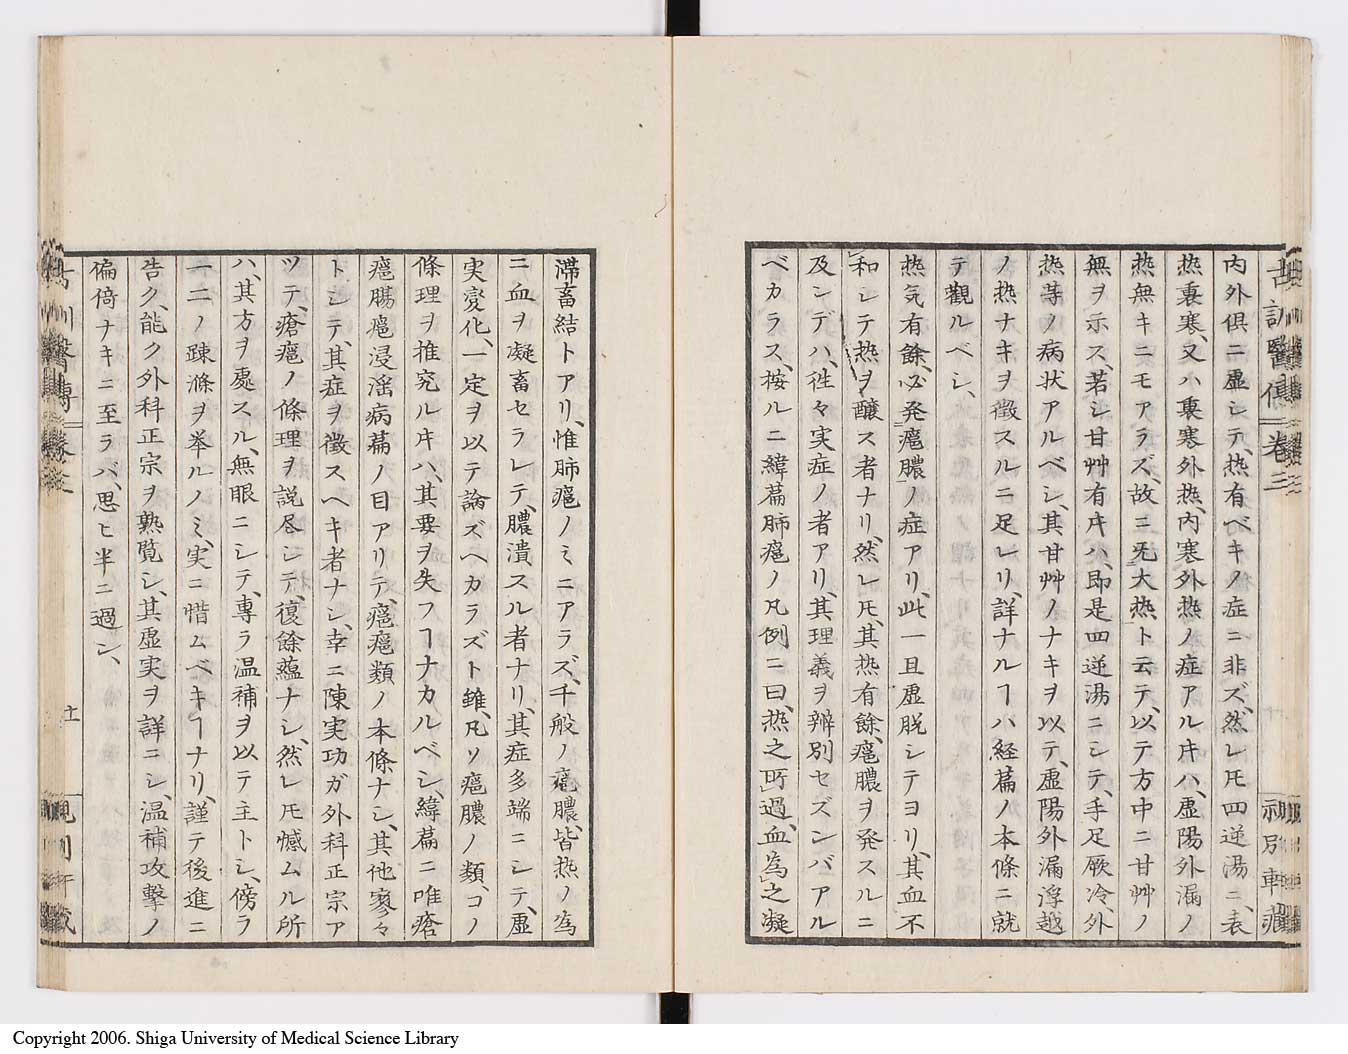 古訓醫傳 卷三
内外倶ニ虚シテ、热有ベキノ症ニ非ズ、然レ𪜈四逆湯ニ、表
热裏寒、又ハ裏寒外热、内寒外热ノ症アル𪜈ハ、虚陽外漏ノ
热無キニモアラズ、故ニ旡大热ト云テ、以テ方中ニ甘艸ノ
無ヲ示ス、若シ甘艸有𪜈ハ、即是四逆湯ニシテ、手足厥冷、外
热等ノ病状アルベシ、其甘艸ノナキヲ以テ、虚陽外漏浮越
ノ热ナキヲ徴スルニ足レリ、詳ナルヿハ経篇ノ本條ニ就
テ觀ルベシ、
热気有餘、必発癰膿ノ症アリ、此一旦虚脱シテヨリ、其血不
和シテ热ヲ釀ス者ナリ、然レ𪜈、其热有餘、癰膿ヲ発スルニ
及ンデハ、徃々実症ノ者アリ、其理義ヲ辨別セズンバアル
ベカラス、按ルニ緯篇肺癰ノ凡例ニ曰、热之所過、血為之凝
滞畜結トアリ、惟肺癰ノミニアラズ、千般ノ癰膿、皆热ノ為
ニ血ヲ凝畜セラレテ、膿潰スル者ナリ、其症多端ニシテ、虚
実変化、一定ヲ以テ論ズヘカラズト雖、凡ソ癰膿ノ類、コノ
條理ヲ推究ル𪜈ハ、其要ヲ失フヿナカルベシ、緯篇ニ唯瘡
癰腸癰浸淫病篇ノ目アリテ、癌癰類ノ本條ナシ、其他寥々
トシテ、其症ヲ徴スヘキ者ナシ、幸ニ陳実功ガ外科正宗ア
ツテ、瘡癰ノ條理ヲ説尽シテ、復餘蘊ナシ、然レ𪜈憾ムル所
ハ、其方ヲ處スル、無眼ニシテ、專ラ温補ヲ以テ主トシ、傍ラ
一二ノ疎滌ヲ挙ルノミ、実ニ惜ムベキヿナリ、謹テ後進ニ
告ク、能ク外科正宗ヲ熟覧シ、其虚実ヲ詳ニシ、温補攻擊ノ
偏倚ナキニ至ラバ、思ヒ半ニ過ン、
Copyright 2006. Shiga University of Medical Science Library